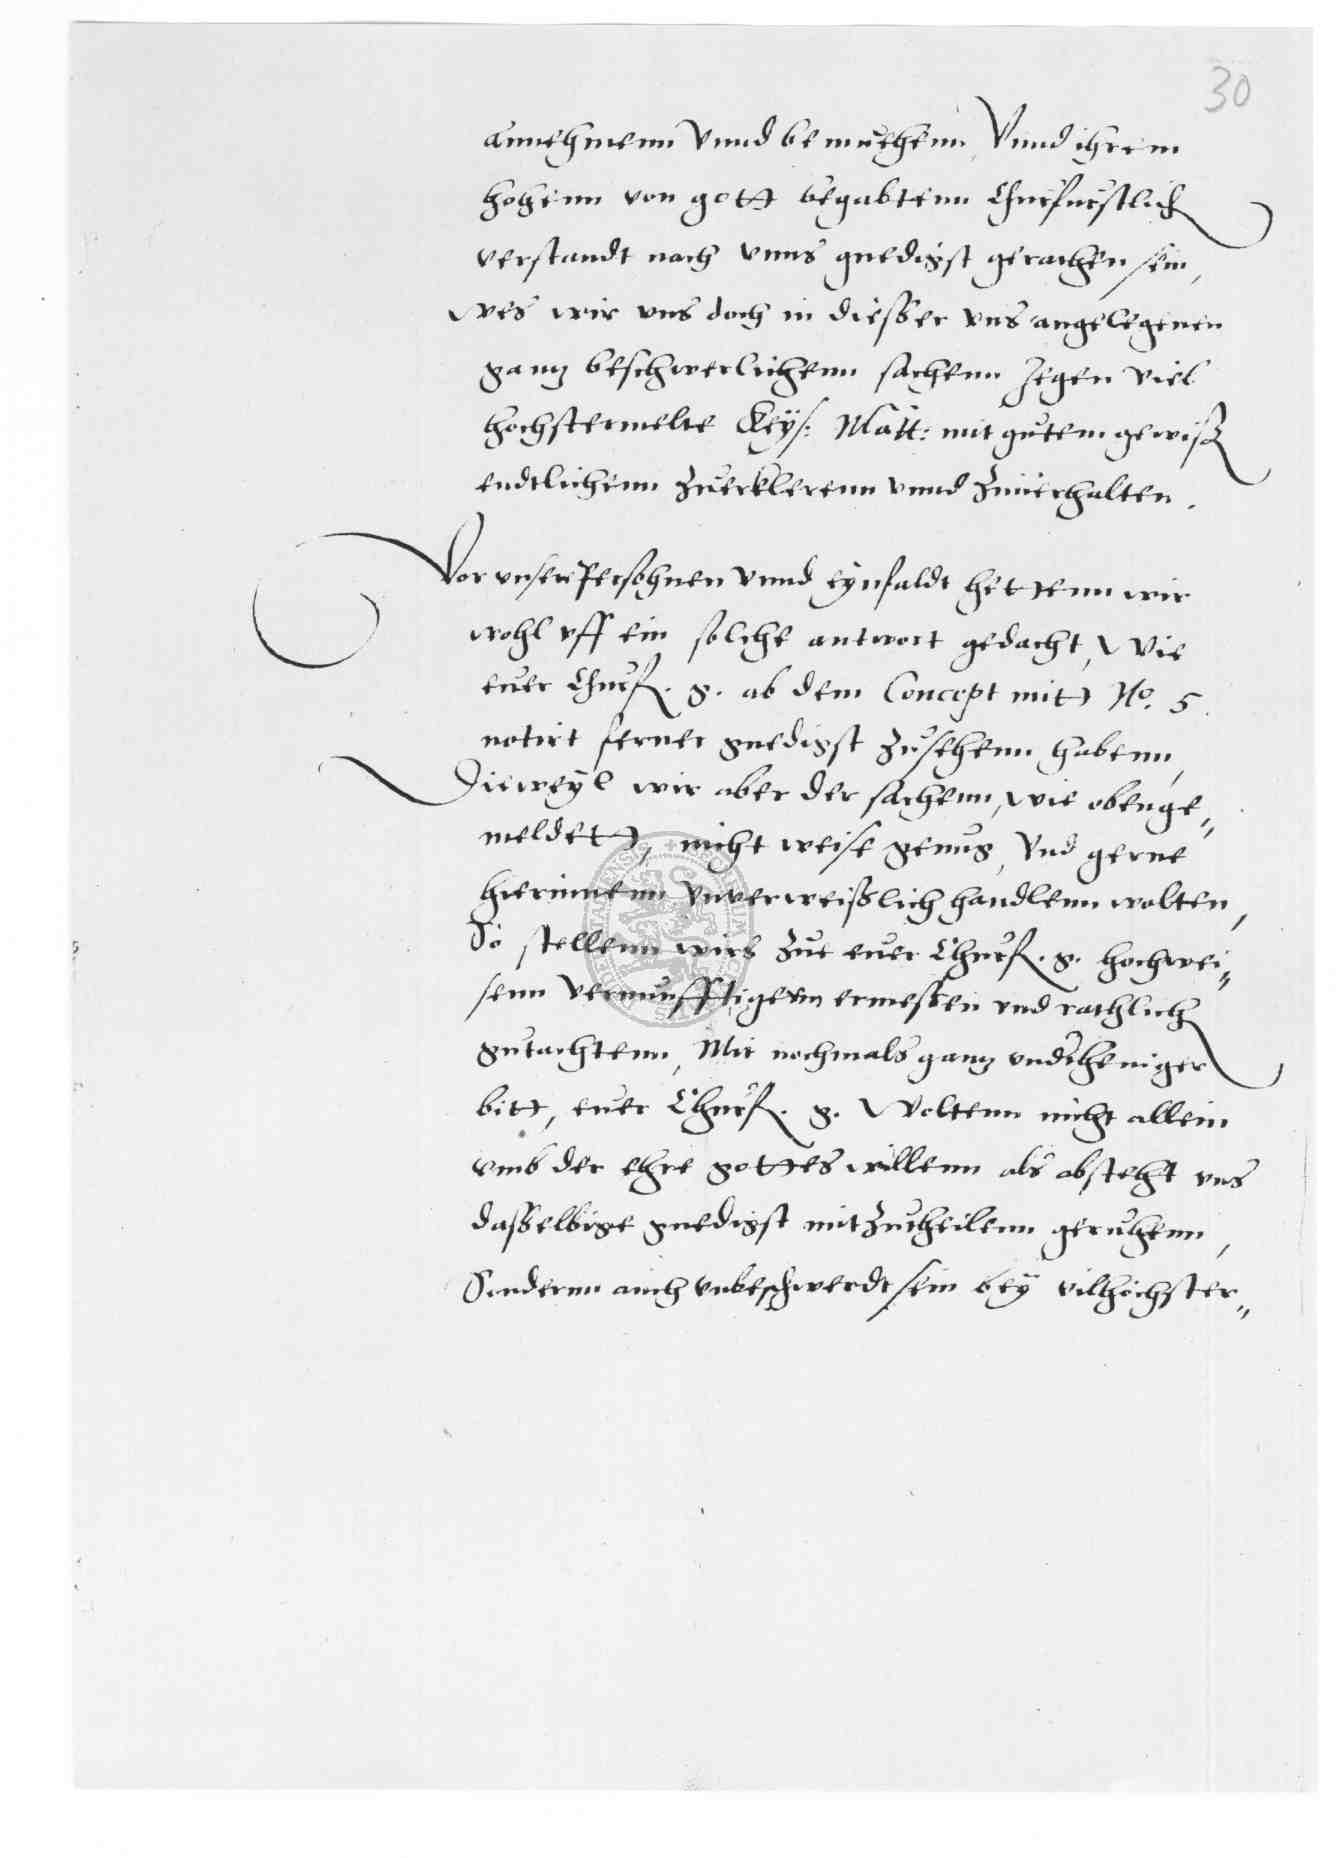 30
annehmenn vnnd bemuehenn, Vnnd ihrem
hohenn von gott begabtenn Churfurstlich
verstandt nach vnns gnedigst gerathen sein,
Wes wir vns doch in diesser vns angelegenen
gantz beschwerlichenn sachenn Jegen viel
hochstermelte Keys: Matt: mit gutem gewiss
endtlichenn Zuerklerenn vnnd Zuuerhalten.
Vor vnsere Persohnen vnnd eynfaldt hettenn wir
wohl vff ein solche antwort gedacht, Wie
euer Churf. g. ab dem Concept mitt No. 5
notirt ferner gnedigst Zusehenn habenn,
Dieweyl wir aber der sachenn, wie obenge„
meldett, nicht weise genug, Vnd gerne
hierinnenn Vnverweisslich handlenn wolten,
So stellenn wirs Zue euer Churf. g. hochwei„
senn Vernunfftigenn ermessen vnd rathlich
gutachtenn, Mit nochmals gantz vndtheniger
bitt, euer Churf. g. Woltenn nicht allein
vmb der ehre gottes willenn als obsteht vns
dasselbige gnedigst mitZutheilenn geruhenn,
Sondernn auch vnbeschwerdt sein bey vilhöchster„